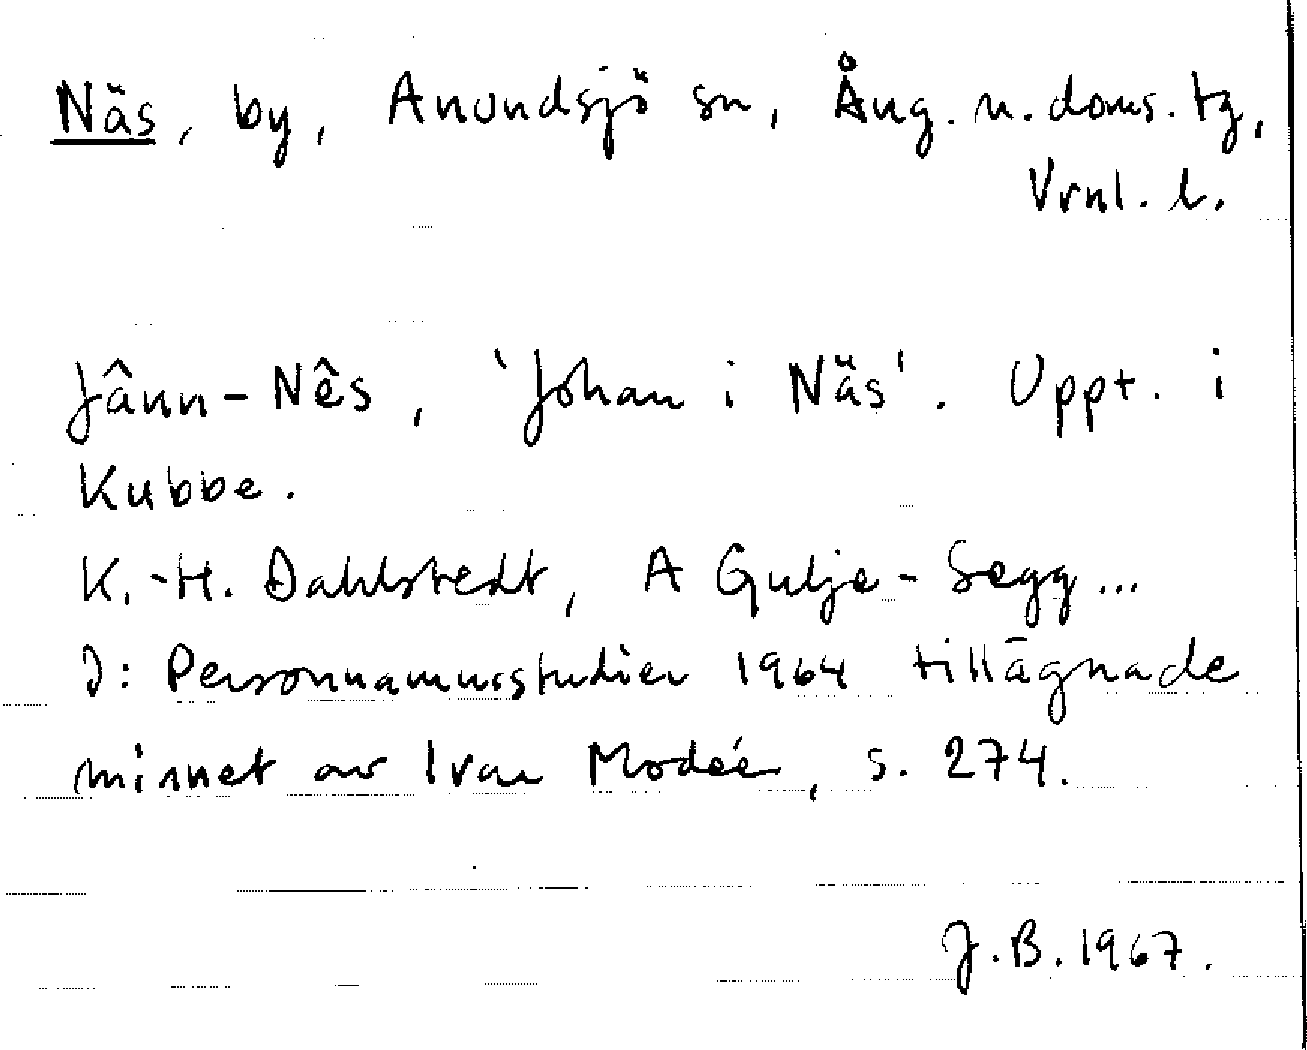 Näs, by, Anundsjö sn, Ång. n. doms. tg,
Vrnl. l.
Jânn-Nês, 'Johan i Näs'. Uppt. i
Kubbe.
K.-H. Dahlstedt, A Gulje-Segg...
I: Personnamnsstudier 1964 tillägnade
minnet av Ivar Modéer, s. 274.
J.B. 1967.